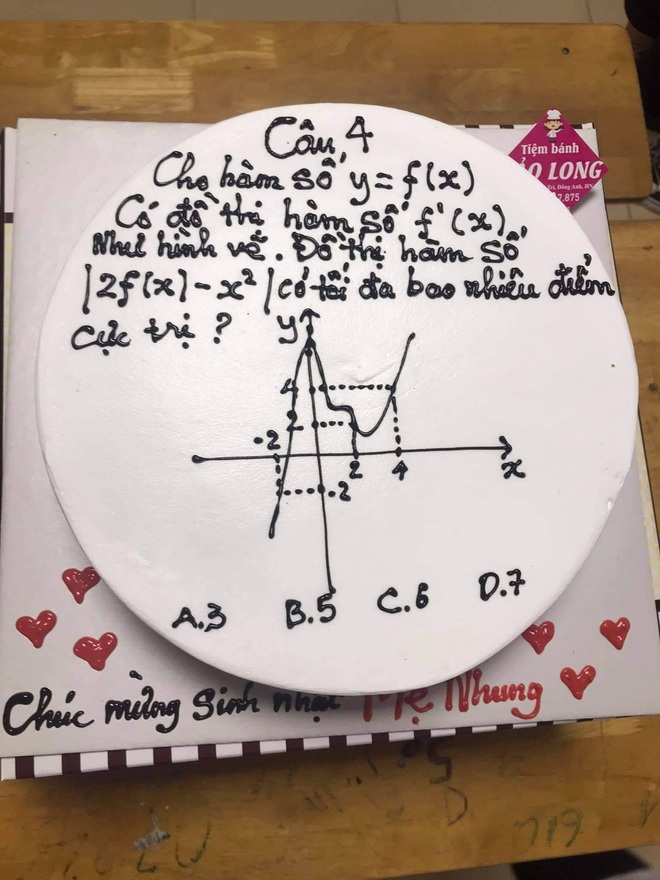 Câu 4
Cho hàm số y = f(x)
Có đồ thị hàm số f'(x)
Như hình vẽ. Đồ thị hàm số
|2f(x) - x² | có tối đa bao nhiêu điểm
cực trị ?
y
4
2
-2
2
4
x
-2
A.3 B.5 C.6 D.7
Chúc mừng sinh nhật Mẹ Nhung
Tiệm bánh
ẢO LONG
Đông Anh, HN
7.875